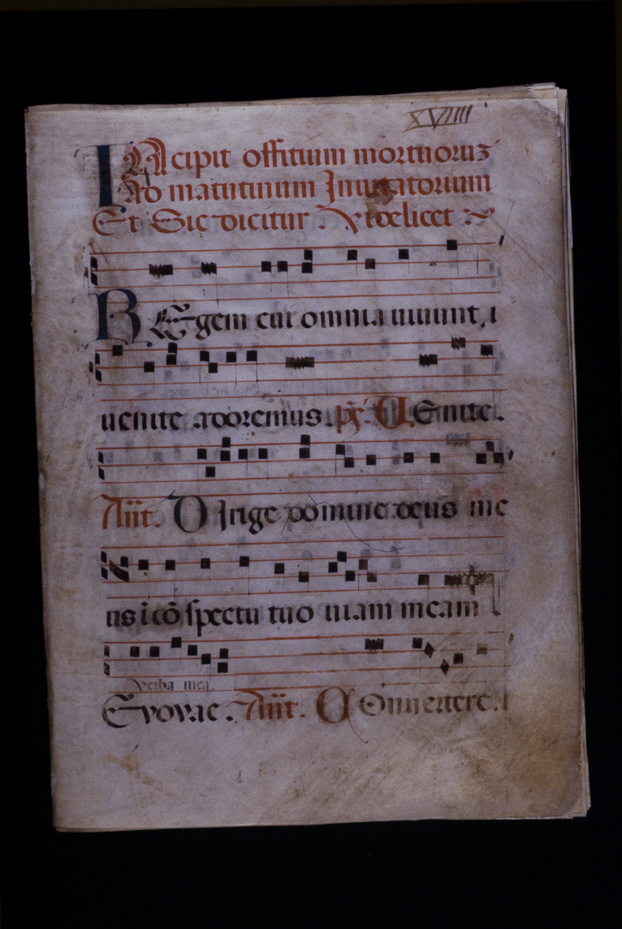 XVIIII
INcipit offitium mortuorum
Ad matutinum Inuitatorium
Et Sic dicitur Videlicet
REgem cui omnia uiuunt, i
uenite adoremus. ps. VEnite.
Ant. DIrige domine deus me
us i cō spectu tuo uiam meam
Verba mea
Evovae. Ant. COnuertere.